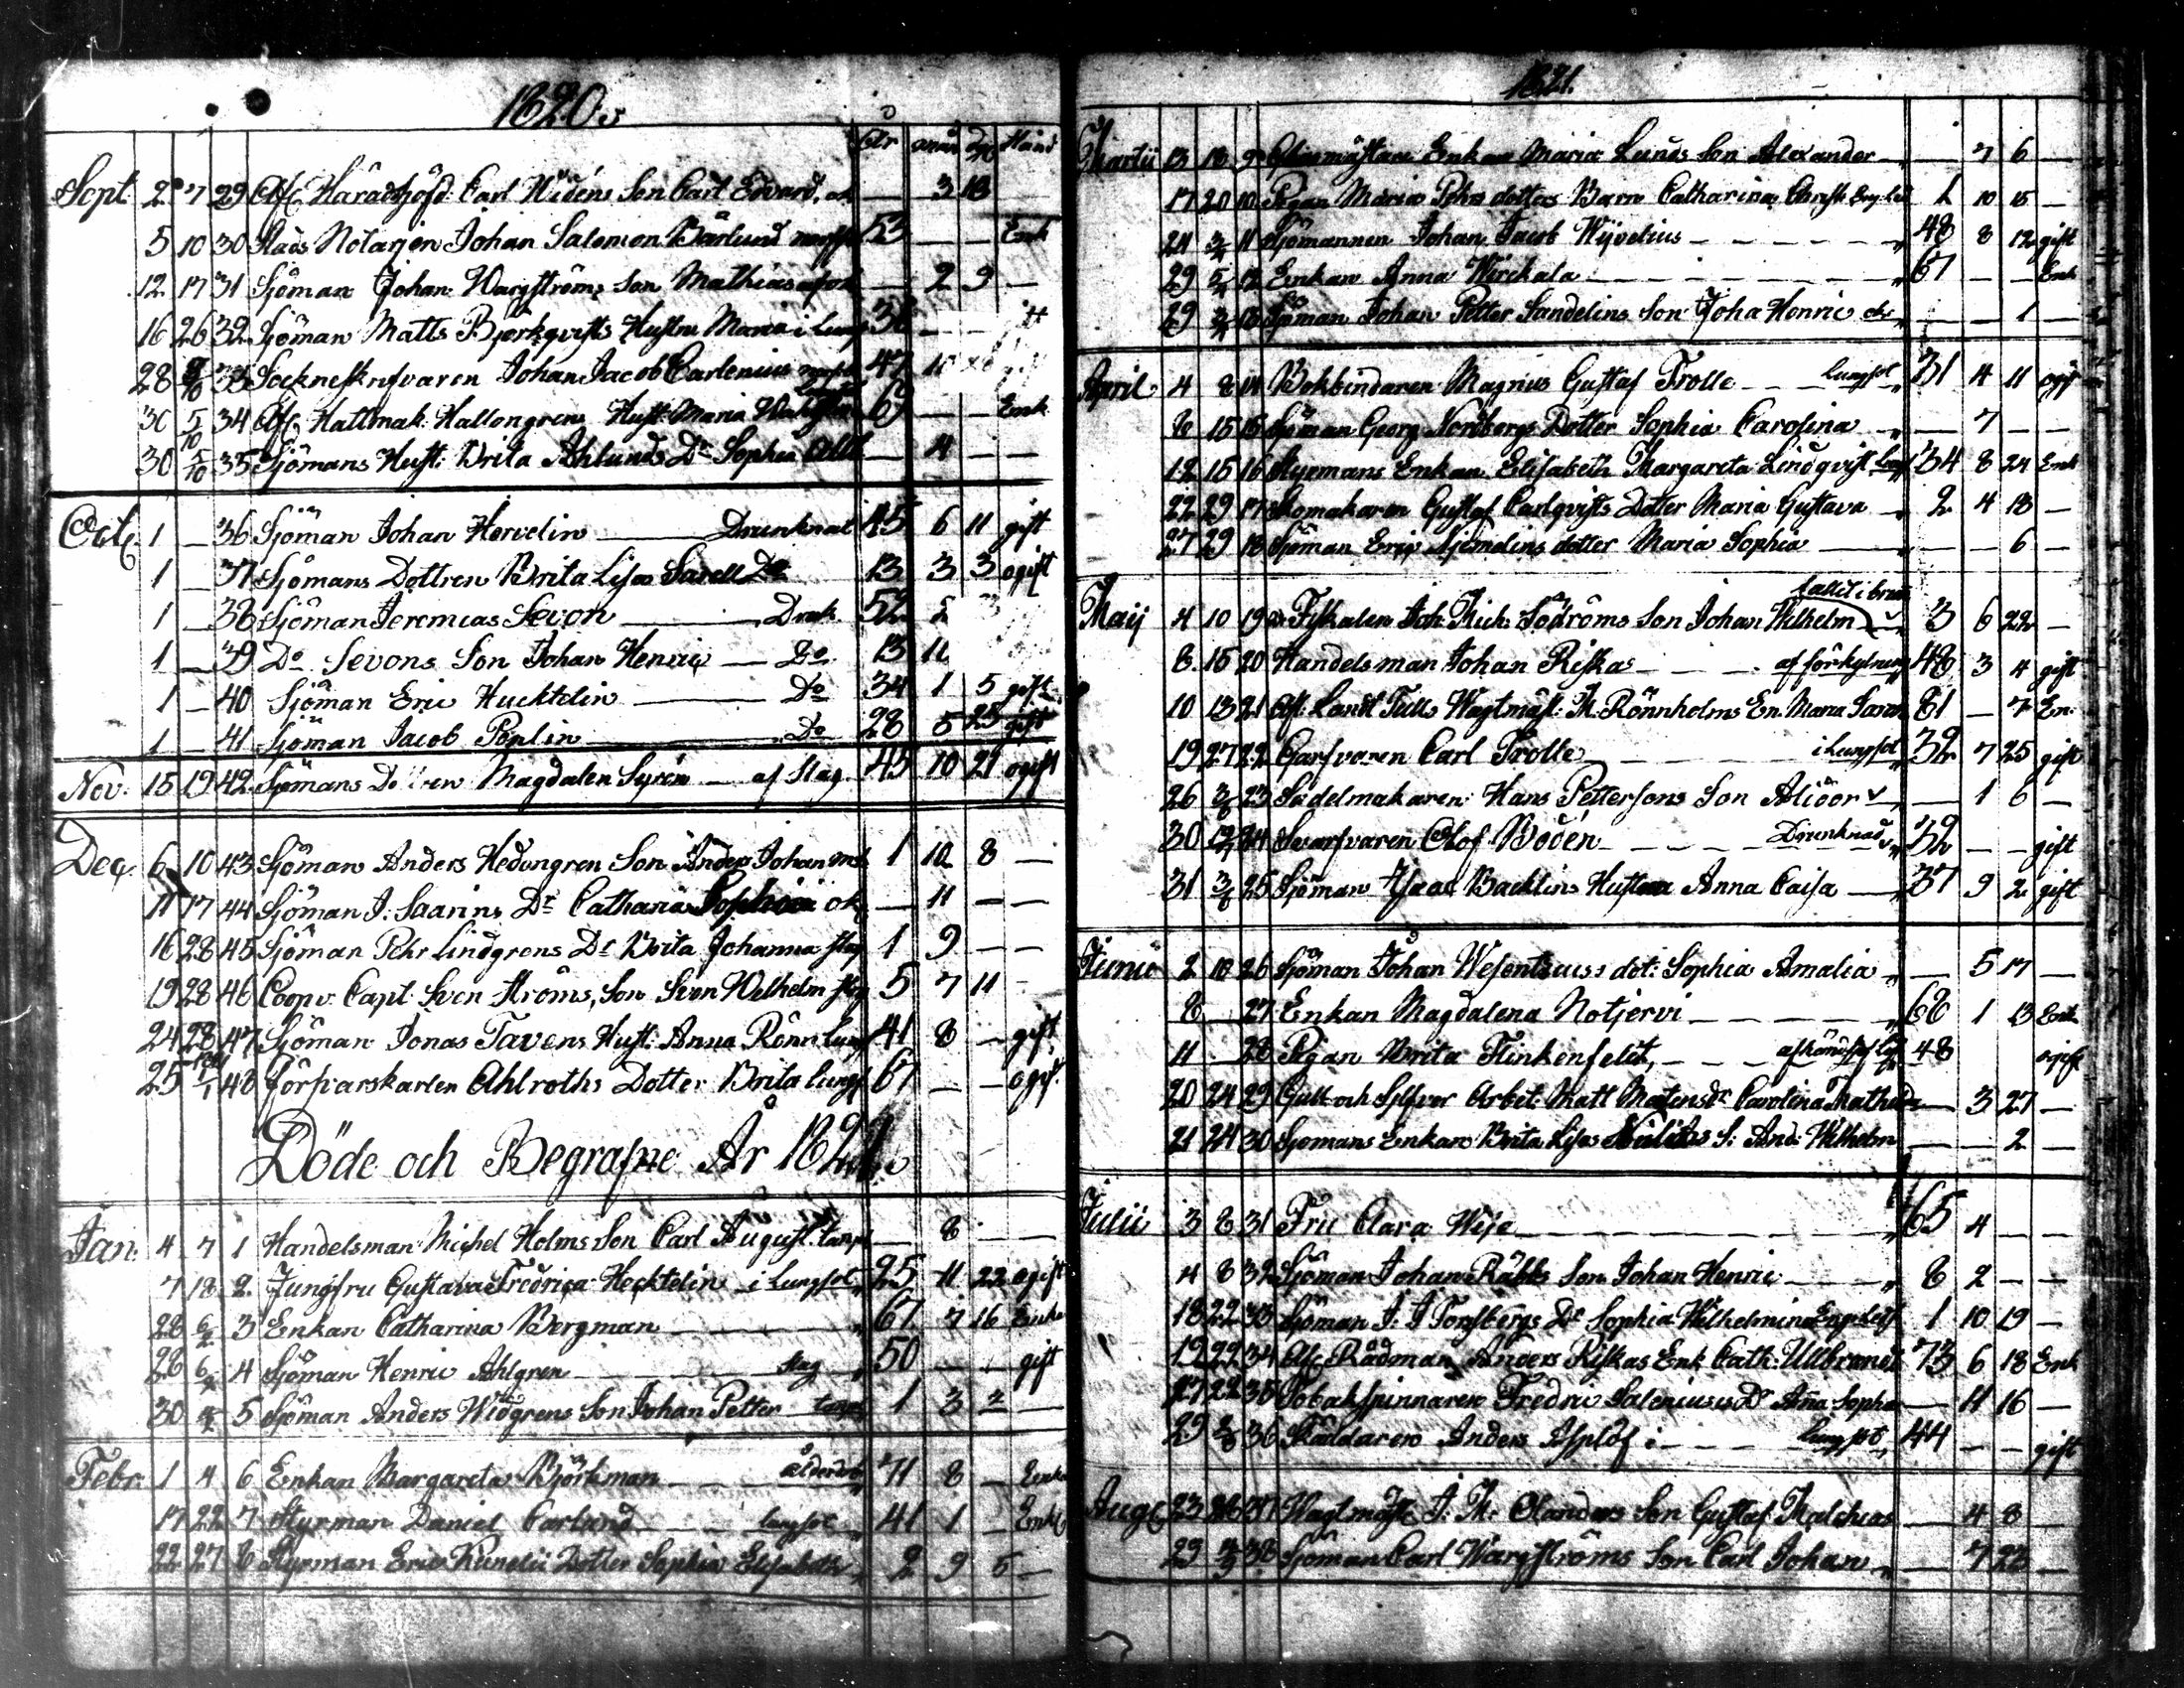 1820
år mån Stånd
Sept. 2 7 29 Afl. Häradshöfd: Carl Widéns Son Carl Edvard, ok — 3 18
5 10 30 Stads Notarjen Johan Salomon Bärlund 53 — — Enk
12 17 31 Sjöman Johan Wargströms Son Mathias — 2 9 —
16 26 32 Sjöman Matts Björkqvists Hustru Maria i Lung
28 33 Sockneskrifvaren Johan Jacob Carlenius 47
30 5/10 34 Afl. Hattmak: Hallongrens Hust: Maria 69 — — Enk
30 5/10 35 Sjömans Hust: Brita Ahlunds Dr Sophia — 4 — —
Oct. 1 — 36 Sjöman Johan Hervelin — Drunknat 45 6 11 gift
1 — 37 Sjömans Dottren Brita Lisa Sarell Do 13 3 3 ogift
1 — 38 Sjöman Jeremias Sevon — Drunk. 52
1 — 39 Do Sevons Son Johan Henric — Do 13 11
1 — 40 Sjöman Eric Hucktelin — Do 34 1 5 gift
1 — 41 Sjöman Jacob Poplin — Do 28 5 25 gift
Nov. 15 19 42 Sjömans Magdalen Syrén — af Slag 45 10 21 ogift
Dec. 6 10 43 Sjöman Anders Hedongren Son Anders Johan 1 10 8 —
11 17 44 Sjöman J. Saarins Dr Catharia Sophia ok — 11 — —
16 28 45 Sjöman Pehr Lindgrens Dr Brita Johanna slag 1 9 — —
19 28 46 Coopv: Capt: Sven Ströms, Son Sven Wilhelm slag 5 7 11
24 28 47 Sjöman Jonas Tavens Hust: Anna Rönn Lung 41 8 — gift
25 48 Försvarskarlen Ahlroths Dotter Brita lungs 67 — — ogift
Döde och Begrafne År 1821.
Jan: 4 7 1 Handelsman Michel Holms Son Carl August — 8 —
7 18 2 Jungfru Gustava Fredrica Hecktelin i Lungsot 25 11 22 ogift
28 3 Enkan Catharina Bergman — 67 7 16 Enka
28 4 Sjöman Henric Ahlgren — slag 50 — — gift
30 5 Sjöman Anders Widgrens Son Johan Petter 1 3 2 —
Febr. 1 4 6 Enkan Margareta Björkman 71 8 — Enka
17 22 7 Styrman Daniel Carlund — lungsot 41 1 — Enkl
22 27 8 Styrman Eric Kunelii Dotter Sophia Elisabeth 2 9 5 —
1821.
Martii 13 18 9 Enkan Maria Lunds Son Alexander — 7 6 —
17 20 10 Pigan Maria Pehrs dotters Barn Catharina 1 10 15 —
24 11 Sjömannen Johan Jacob Wijvelius — 48 8 12 gift
29 12 Enkan Anna Wirckala — 67 — — Enk
29 13 Sjöman Johan Petter Sandelins Son Joha Henric ok — — 1 —
April 4 8 14 Bokbindaren Magnus Gustaf Trolle — lungsot 31 4 11 ogift
8 15 15 Sjöman Georg Nordbergs Dotter Sophia Carolina — 7 — —
12 15 16 Styrmans Enkan Elisabeth Margareta Lindqvist 34 8 24 Enk
22 29 17 Skomakaren Gustaf Carlqvists Dotter Maria Gustava 2 4 18 —
27 29 18 Sjöman Eric dotter Maria Sophia — — 6 —
Maij 4 10 19 Fiskalen Joh: Mich: Södroms Son Johan Wilhelm 3 6 22 —
8 15 20 Handelsman Johan Riska — af förkylning 48 3 4 gift
10 13 21 Afl: Landt Tulls Wagtmäst: M. Rönnholms En. Maria Sara 81 — 7 En.
19 27 22 Garfvaren Carl Trolle — i Lungsot 32 7 25 gift
26 23 Sadelmakaren Hans Pettersons Son — 1 6 —
30 24 Svarfvaren Olof Bodén — Drunknad 32 — — gift
31 25 Sjöman Isaac Backlins Hustru Anna Caisa 37 9 2 gift
Junii 2 10 26 Sjöman Johan Wesentiuss dot: Sophia Amalia — 5 17 —
8 27 Enkan Magdalena Notjervi — 68 1 13 Enk
11 28 Pigan Brita Finkenfelt, 48 ogift
20 24 29 Guld och Silfver Arbet: Matt Dr Carolina Mathilda — 3 27 —
21 24 30 Sjömans Enkan Brita Lisa S: And: Wilhelm — — 2 —
Julii 3 8 31 Fru Clara Weje — 65 4 — —
4 8 32 Sjöman Johan Räbbs Son Johan Henric — 8 2 — —
18 22 33 Sjöman J. J Forsbergs Dr Sophia Wilhelmina 1 10 19 —
19 22 34 Afl. Rådman Anders Riskas Enk: Cath: Ullbrandt 73 6 18 Enk
17 22 35 Tobakspinnaren Fredric Saleniuses Dr Anna Sophia — 11 16 —
29 36 Anders Asplöf i — Lungsot 44 — — gift
Aug. 23 26 37 Wagtmäst: J. M. Olanders Son Gustaf Malchias — 4 8 —
29 38 Sjöman Carl Wargströms Son Carl Johan — 7 22 —